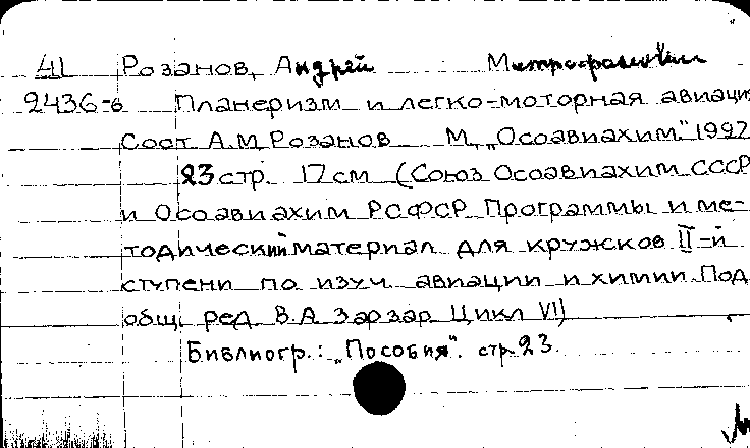 41 Розанов, Андрей Митрофанович
2436-в Планеризм и легко-моторная авиация
Сост. А.М. Розанов М., „Осоавиахим." 1927
23 стр. 17 см (Союз Осоавиахим СССР
и Осоавиахим РСФСР Программы и ме-
тодический материал для кружков II-й
ступени по изуч. авиации и химии. Под
общ. ред. В.А. Зарзар Цикл VII)
Библиогр.: „Пособия". стр. 23.